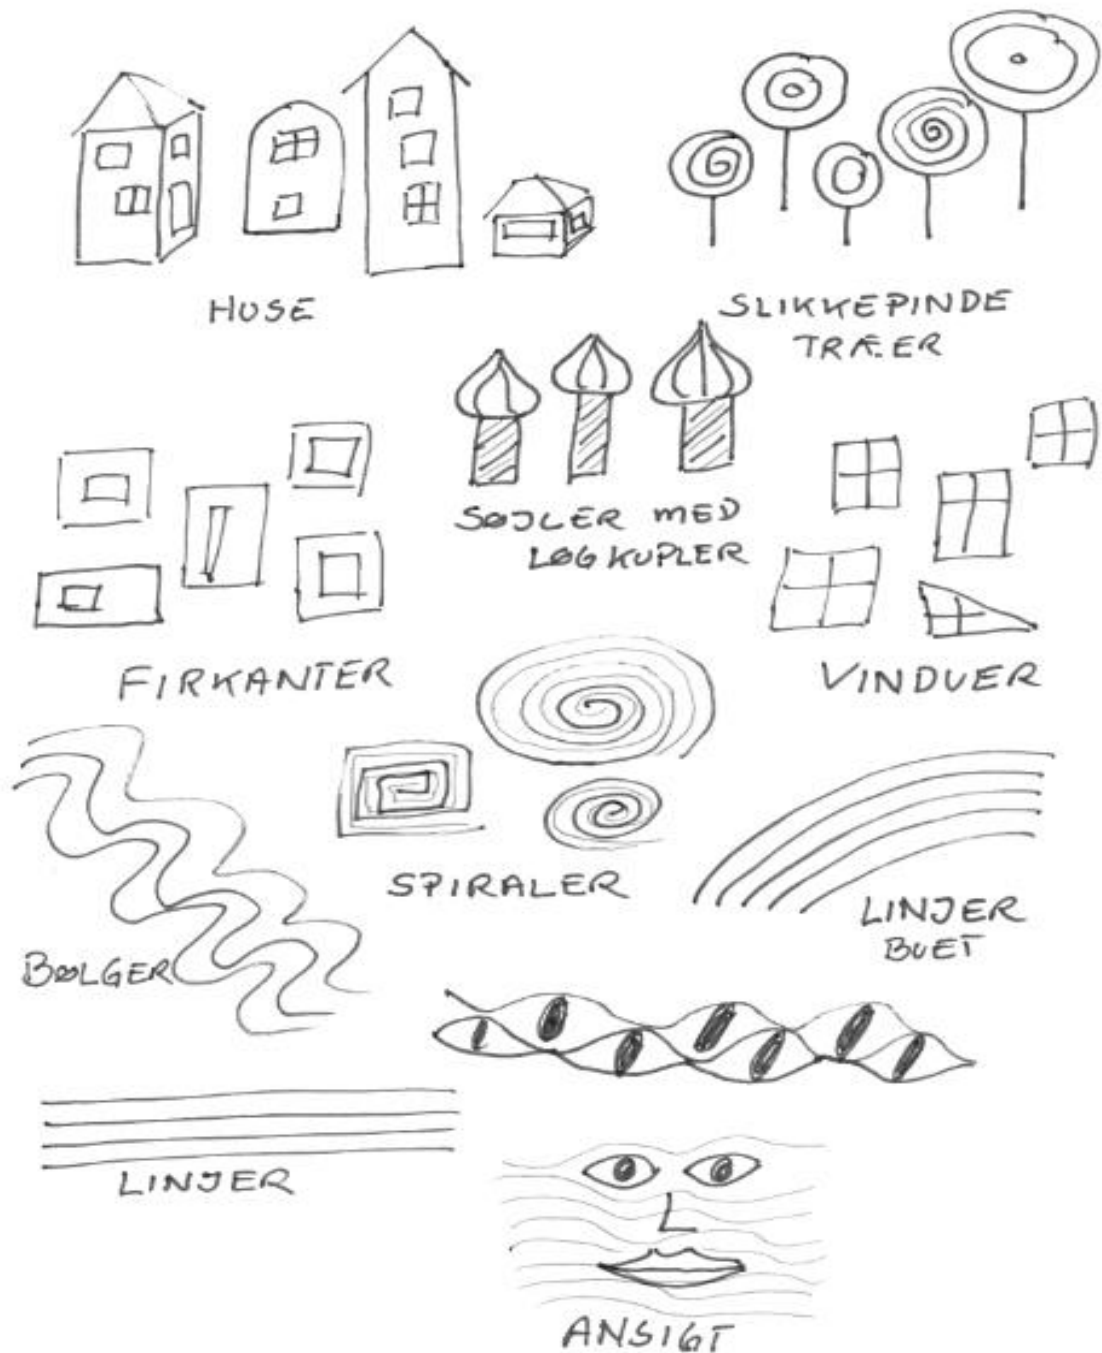 HUSE
SLIKKEPINDE
TRÆER
SØJLER MED
LØGKUPLER
FIRKANTER
VINDUER
SPIRALER
LINJER
BUET
BØLGER
LINJER
ANSIGT